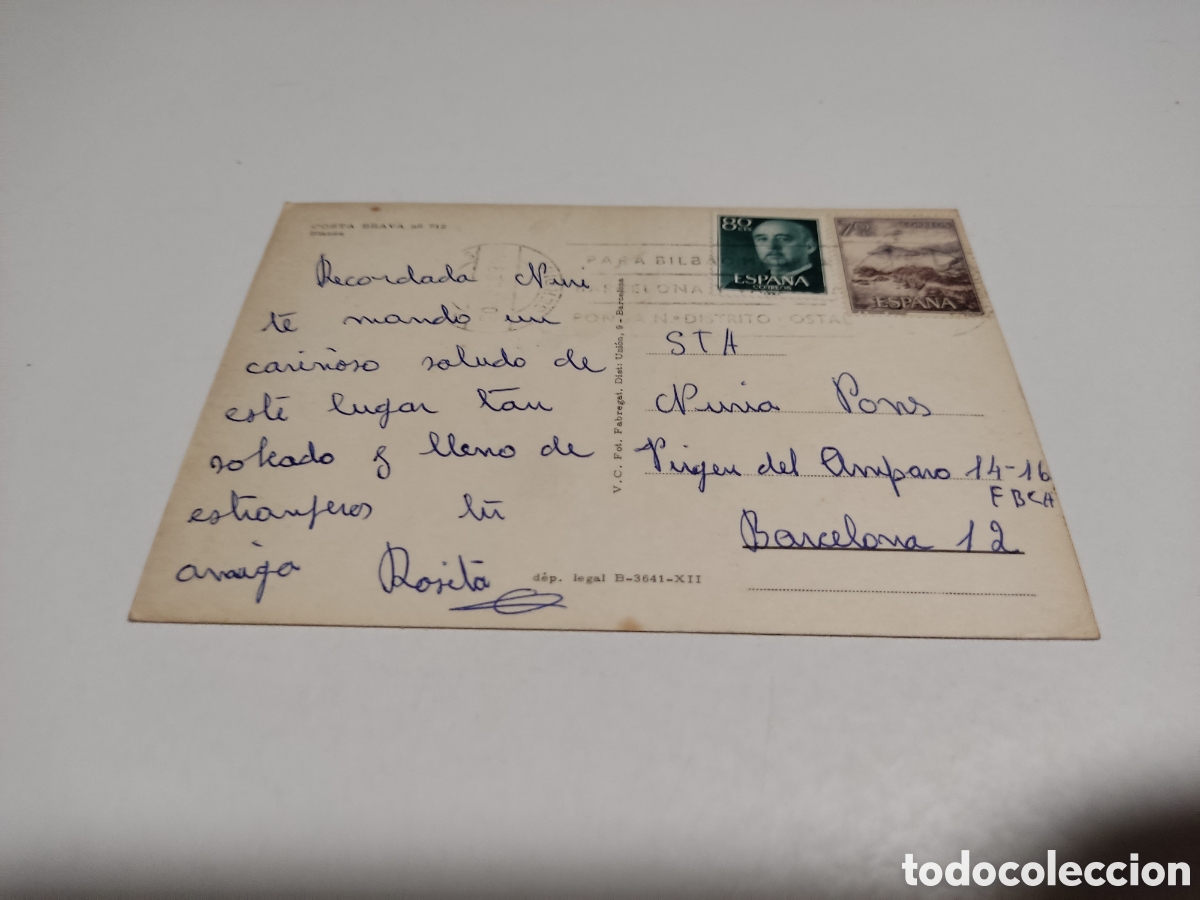 COSTA BRAVA nº 712
Blanes
Recordada Nuri
te mando un
cariñoso saludo de
este lugar tan
soleado y lleno de
estranjeros tu
amiga Rosita
V. C. Fot. Fabregat. Dist: Unión, 9 - Barcelona
dép. legal B-3641-XII
PARA BILBA
BARCELONA
PONGA Nº DISTRITO POSTAL
80 CTS
ESPAÑA
CORREOS
ESPAÑA
STA
Nuria Pons
Virgen del Amparo 14-16
Barcelona 12
todocoleccion